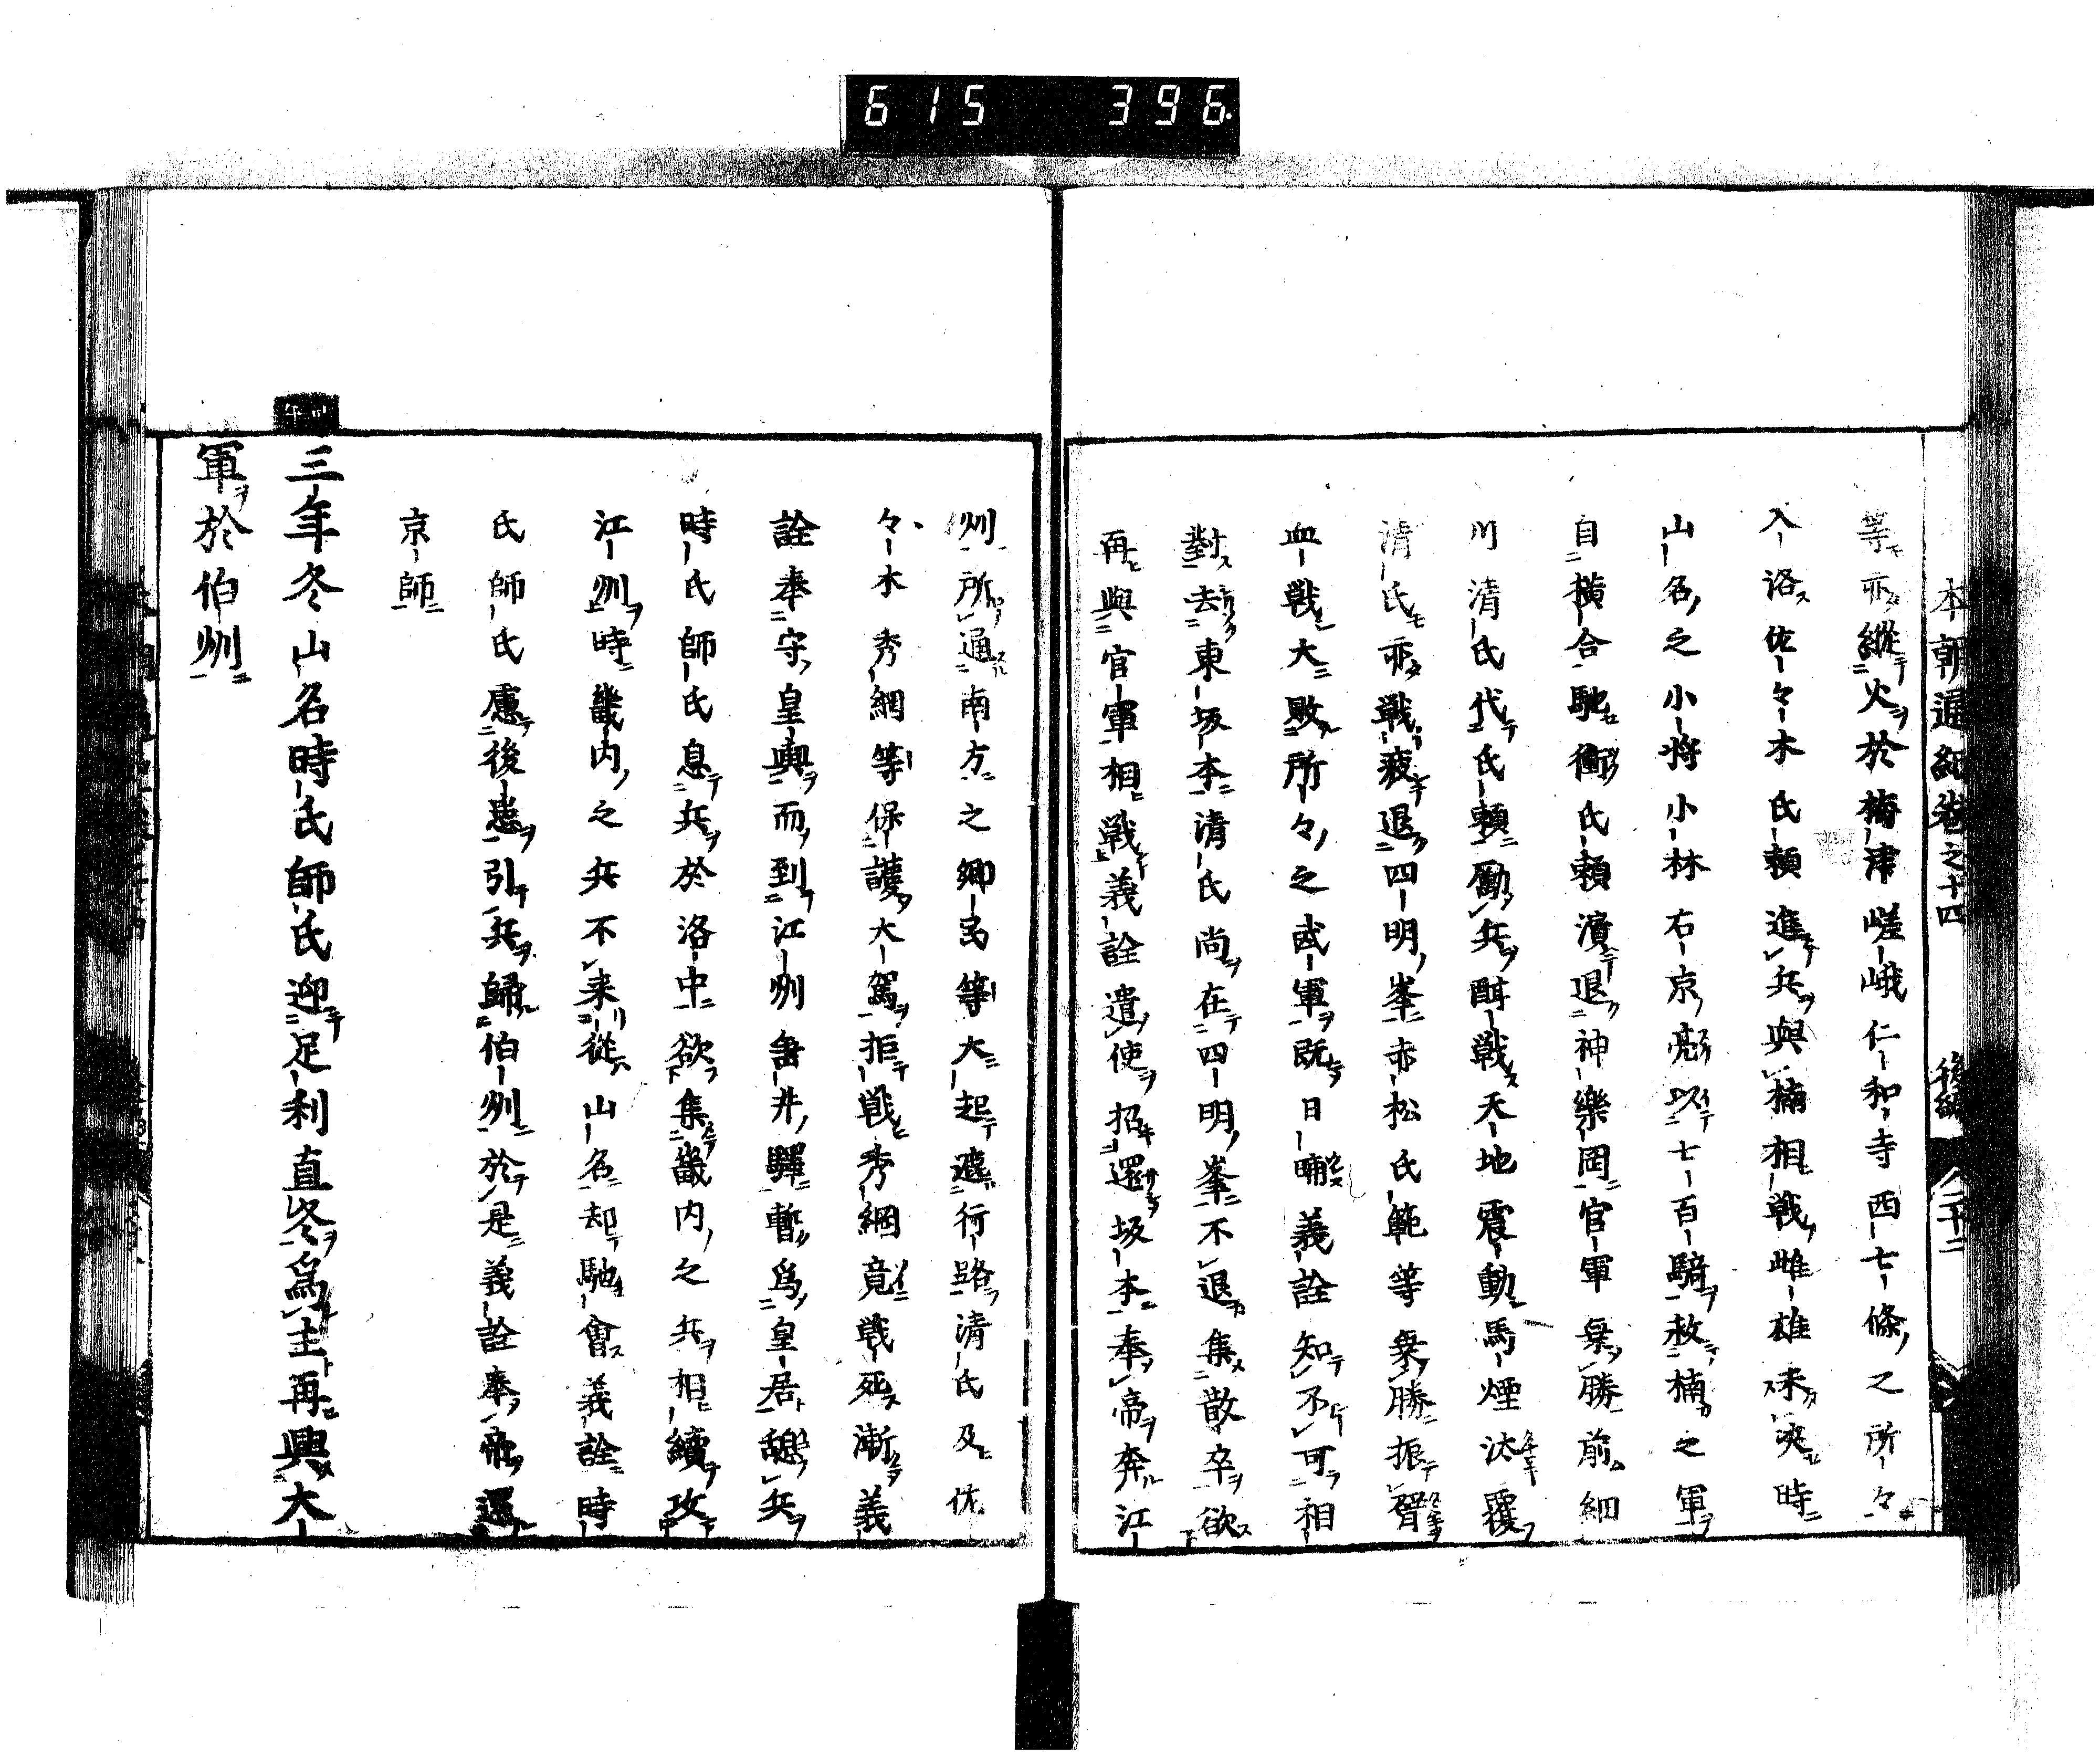 615 396
本朝通紀卷之十四 後編 二十二
等亦縱火於梅津嵯峨仁和寺西七條之所々
入洛佐々木氏賴進兵與楠相戰雌雄未決時
山名之小將小林右京亮以七百騎救楠之軍
自橫合馳衝氏賴潰退神樂岡官軍乗勝前細
川清氏代氏賴勵兵酣戰天地震動馬煙汰覆
清氏亦戰疲退四明峯赤松氏範等乗勝振
血戰大敗所々之武軍既日晡義詮知不可相
對去東坂本清氏尚在四明峯不退集散卒欲
再與官軍相戰義詮遣使招還坂本奉帝奔江
州所通南方之鄉民等大起遮行路清氏及佐
々木秀綱等保護大駕拒戰秀綱竟戰死漸義
詮奉守皇輿而到江州番井驛暫爲皇居憩兵
時氏師氏息兵於洛中欲集畿内之兵相續攻
江州時畿内之兵不来從山名却馳會義詮時
氏師氏慮後患引兵歸伯州於是義詮奉帝還
京師
三年冬山名時氏師氏迎足利直冬爲主再興大
軍於伯州